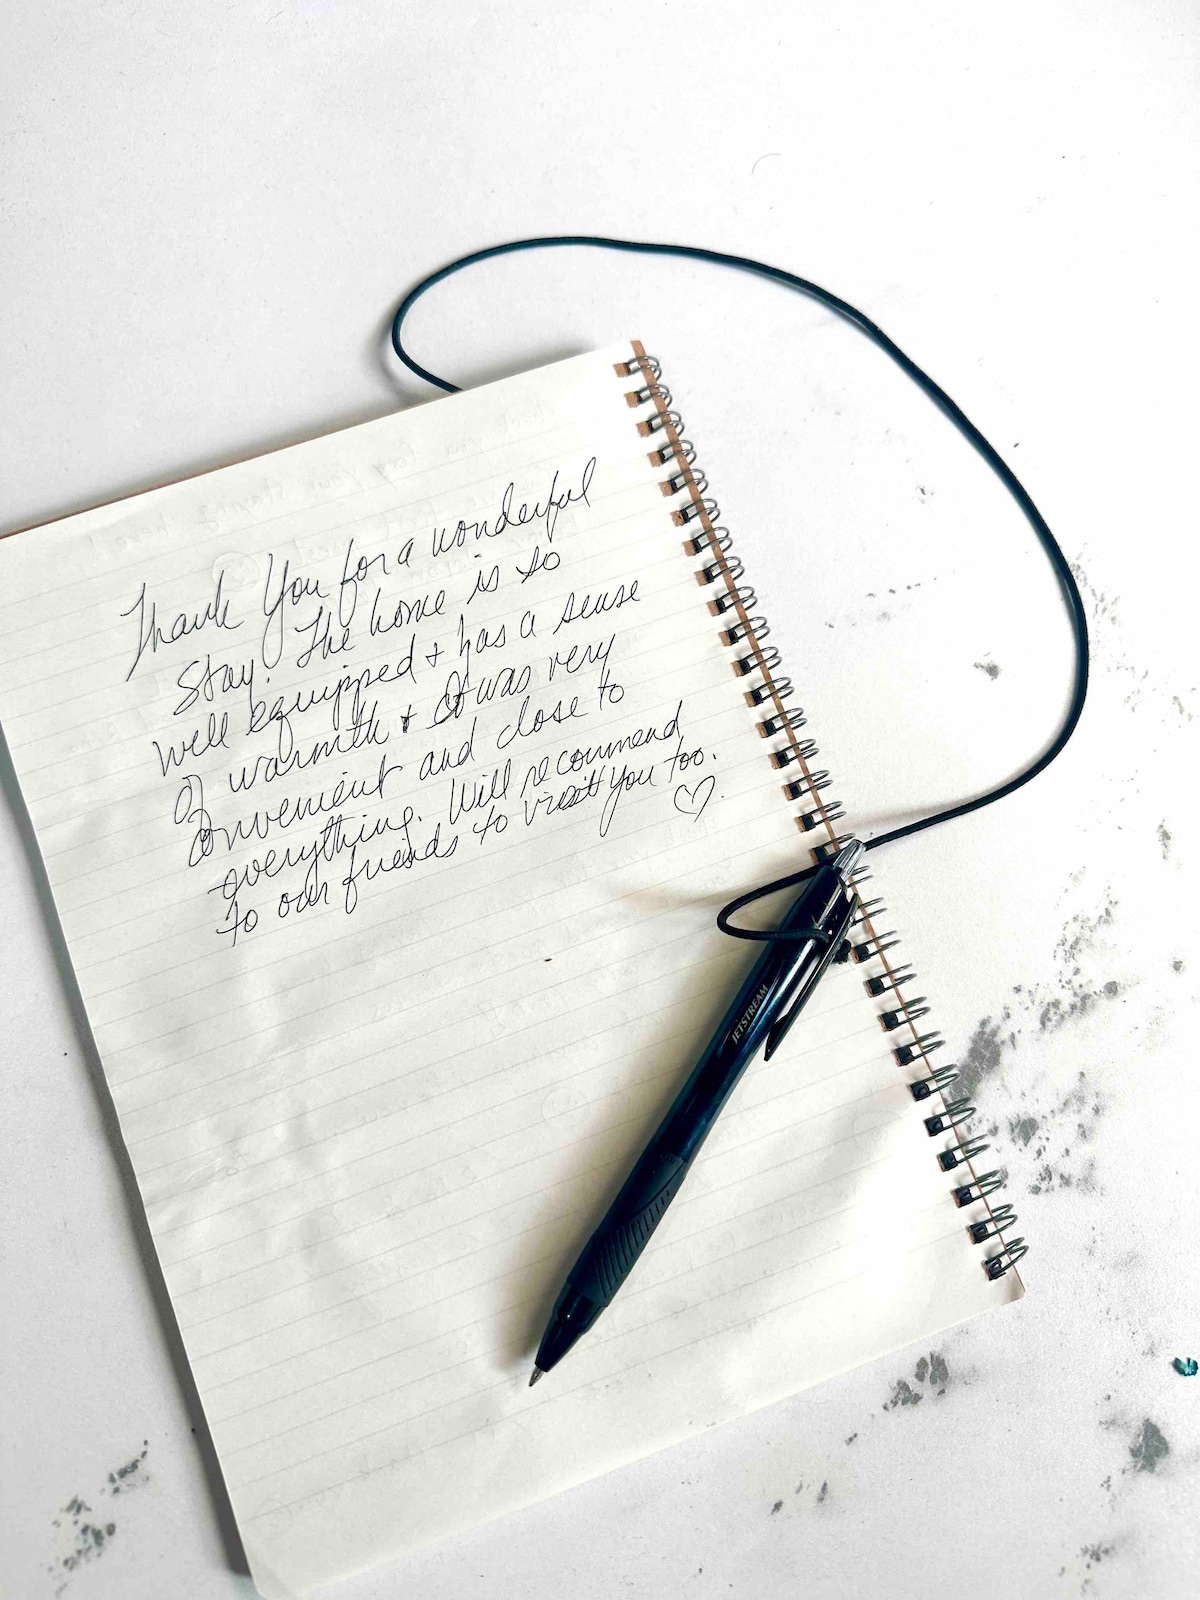 Thank You for a wonderful
Stay. The home is so
well equipped + has a sense
of warmth + It was very
convenient and close to
everything. Will recommend
to our friends to visit you too.
♡
JETSTREAM